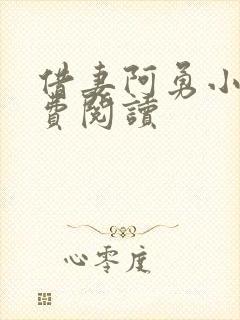 借妻阿勇小
費閱讀
心零度